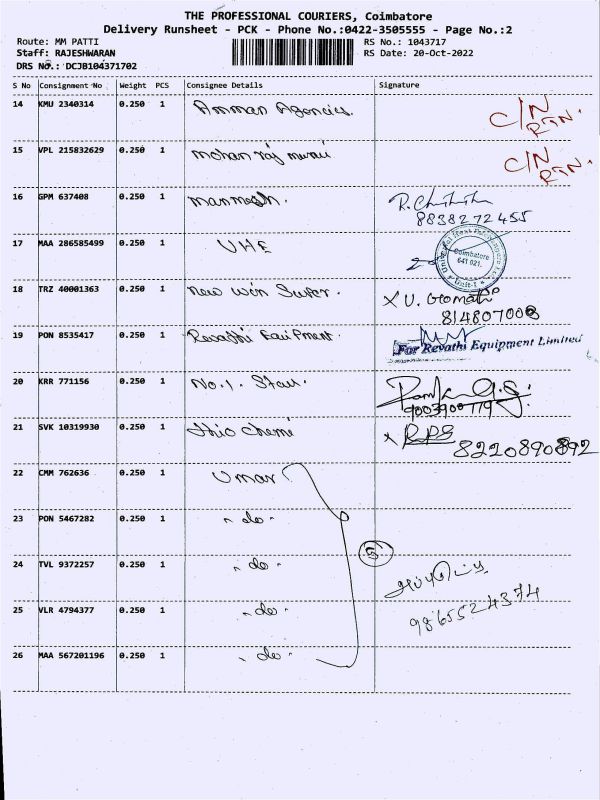 THE PROFESSIONAL COURIERS, Coimbatore
Delivery Runsheet - PCK - Phone No.:0422-3505555 - Page No.:2
Route: MM PATTI
RS No.: 1043717
Staff: RAJESHWARAN
RS Date: 20-Oct-2022
DRS No.: DCJB104371702
S No Consignment No Weight PCS Consignee Details Signature
14 KMU 2340314 0.250 1 Amman Agencies C/N RTN.
15 VPL 215832629 0.250 1 mohan raj C/N RTN.
16 GPM 637408 0.250 1 8838272455
17 MAA 286585499 0.250 1 UHE Coimbatore 641 021. Unit-1
18 TRZ 40001363 0.250 1 new win X U. Gomathi
814807008
19 PON 8535417 0.250 1 Revathi Equipment. For Revathi Equipment Limited
20 KRR 771156 0.250 1 No.1. Star. 9003900779
21 SVK 10319930 0.250 1 thio chemi X RPS
8220890892
22 CMM 762636 0.250 1 Umar
23 PON 5467282 0.250 1 - do -
5
24 TVL 9372257 0.250 1 - do -
25 VLR 4794377 0.250 1 - do - 9865524374
26 MAA 567201196 0.250 1 - do -